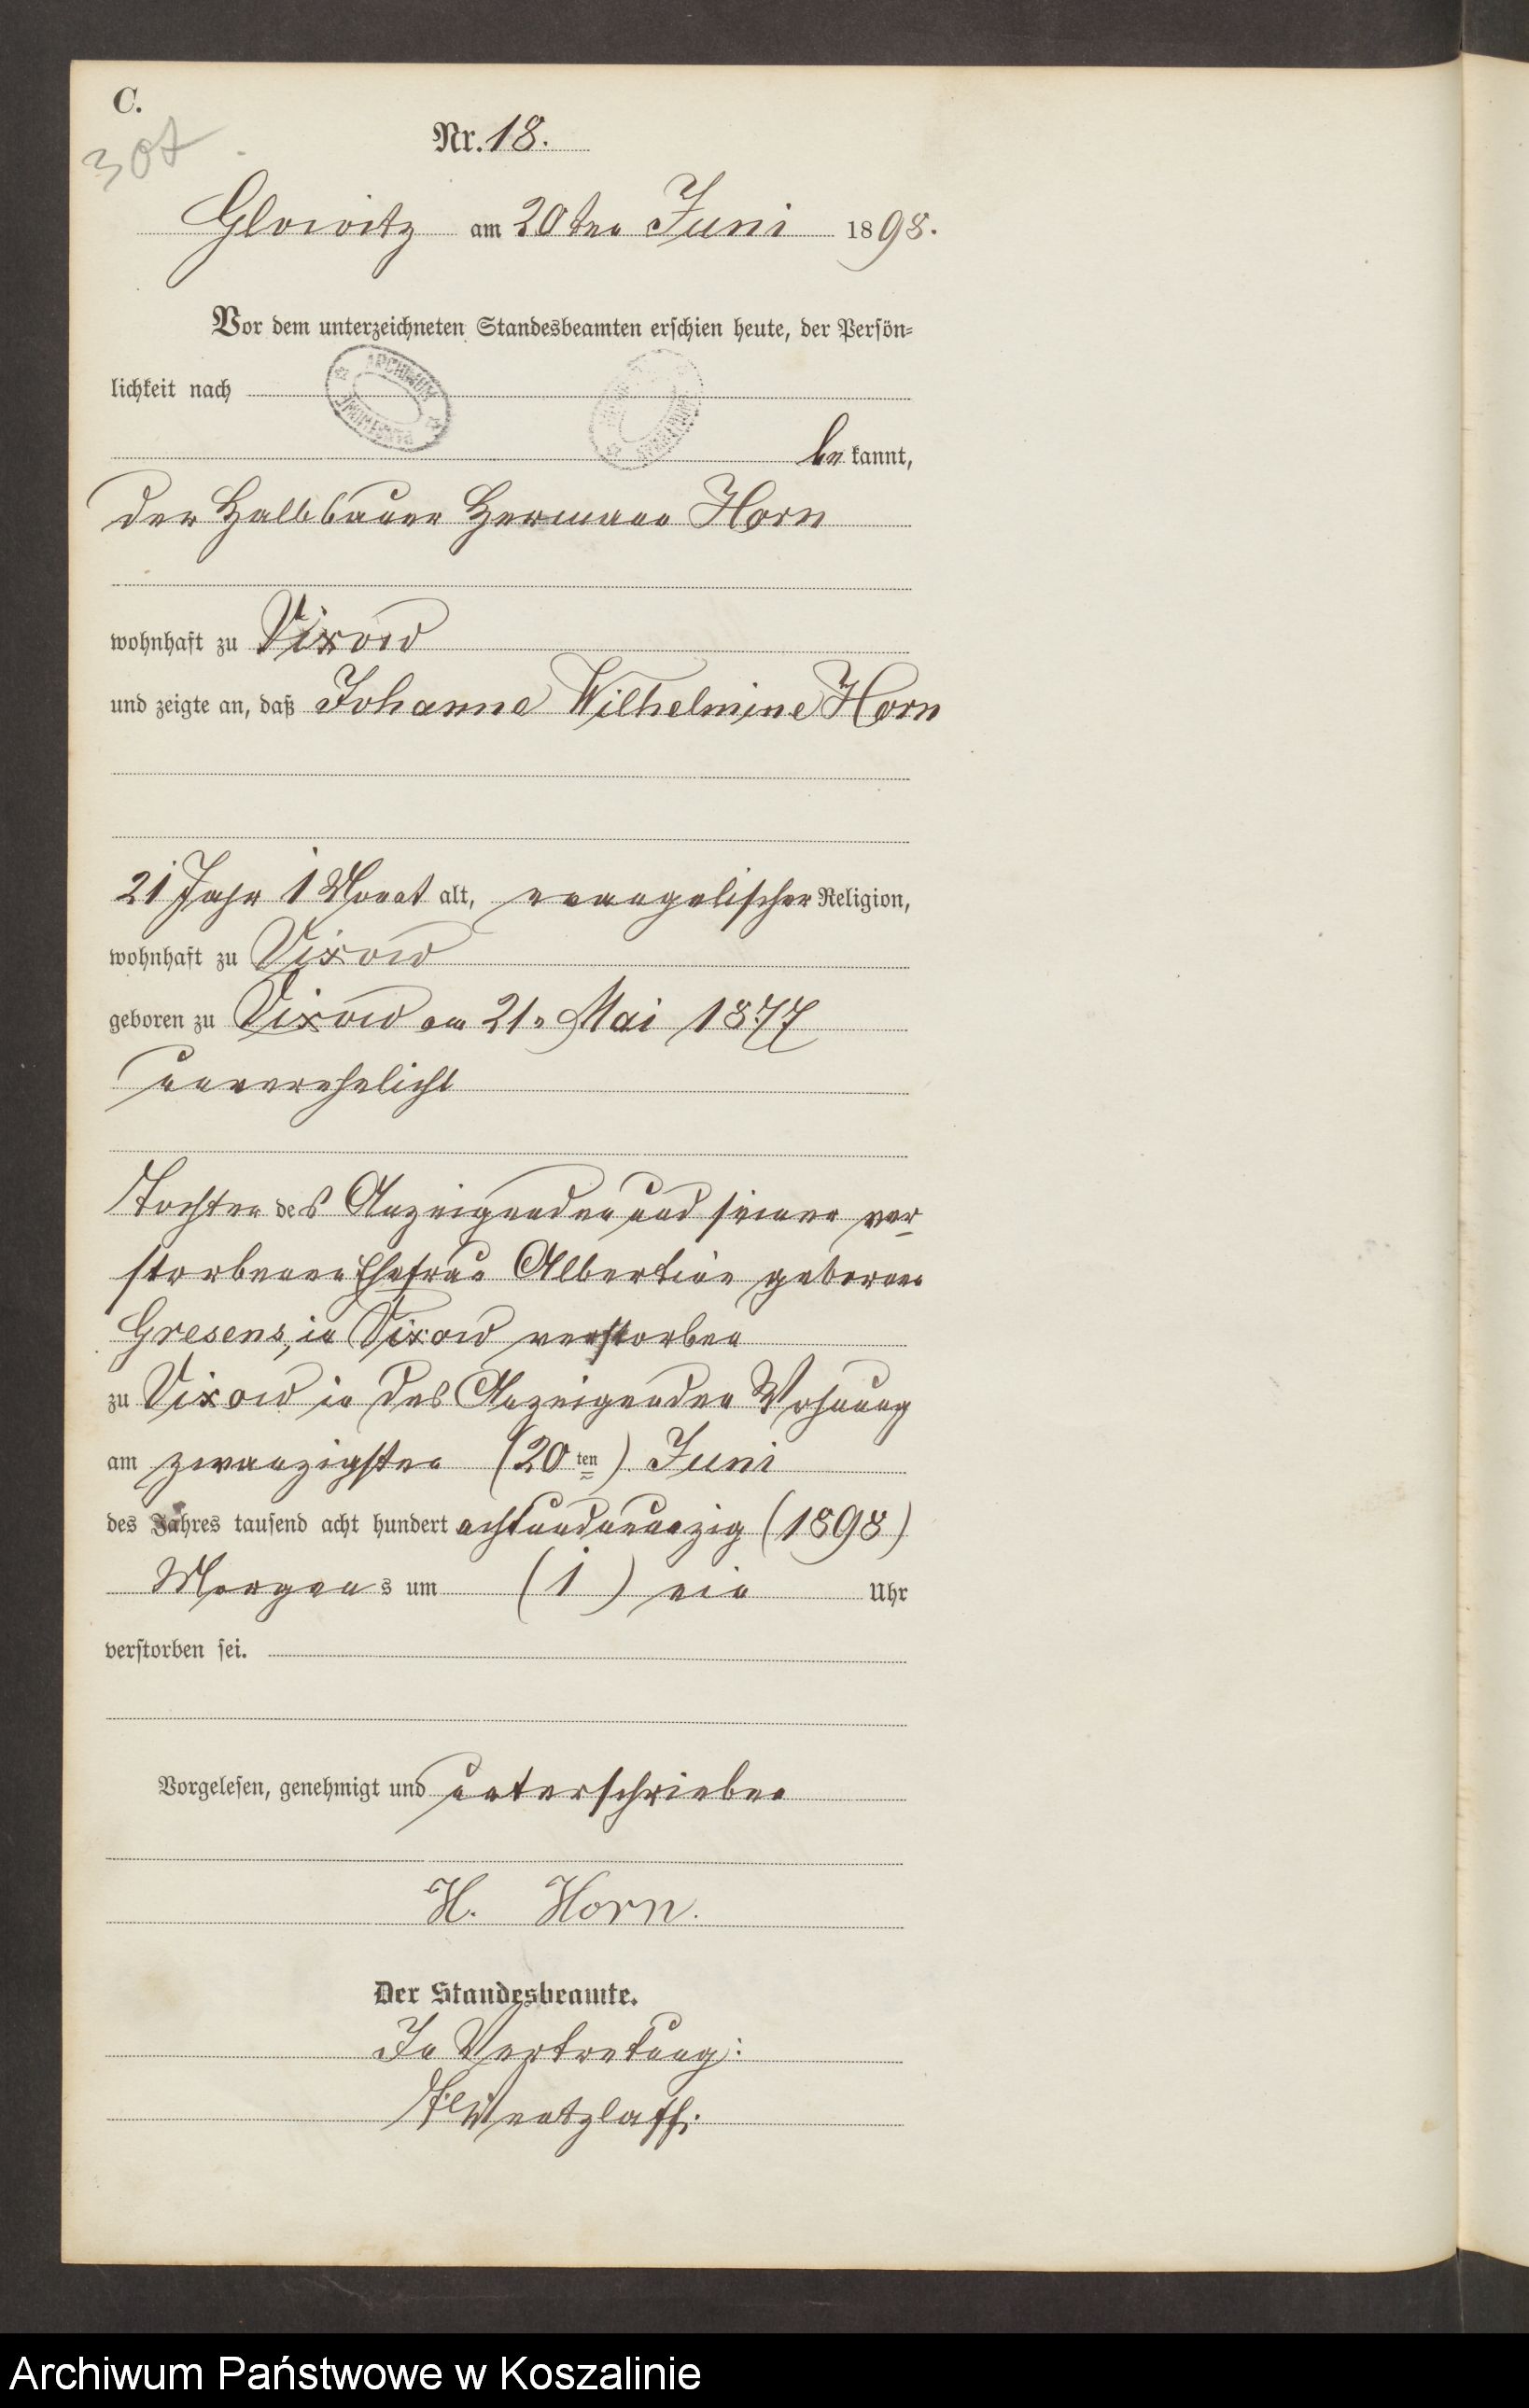 C.
307
Nr. 18.
Glowitz am 20ten Juni 1898.
Vor dem unterzeichneten Standesbeamten erschien heute, der Persön=
lichkeit nach
ARCHIWUM
be kannt,
der Halbbauer Hermann Horn
wohnhaft zu Vixow
und zeigte an, daß Johanne Wilhelmine Horn
21 Jahr 1 Monat alt, evangelischer Religion,
wohnhaft zu Vixow
geboren zu Vixow am 21. Mai 1877
unverehelicht
Tochter des Anzeigenden und seiner ver
storbenen Ehefrau Albertine geborene
Gresens, in Vixow verstorben
zu Vixow in des Anzeigenden Wohnung
am zwanzigsten (20ten) Juni
des Jahres tausend acht hundert achtundneunzig (1898)
Morgens um (1) ein Uhr
verstorben sei.
Vorgelesen, genehmigt und unterschrieben
H. Horn.
Der Standesbeamte.
In Vertretung:
Wentzlaff.
Archiwum Państwowe w Koszalinie